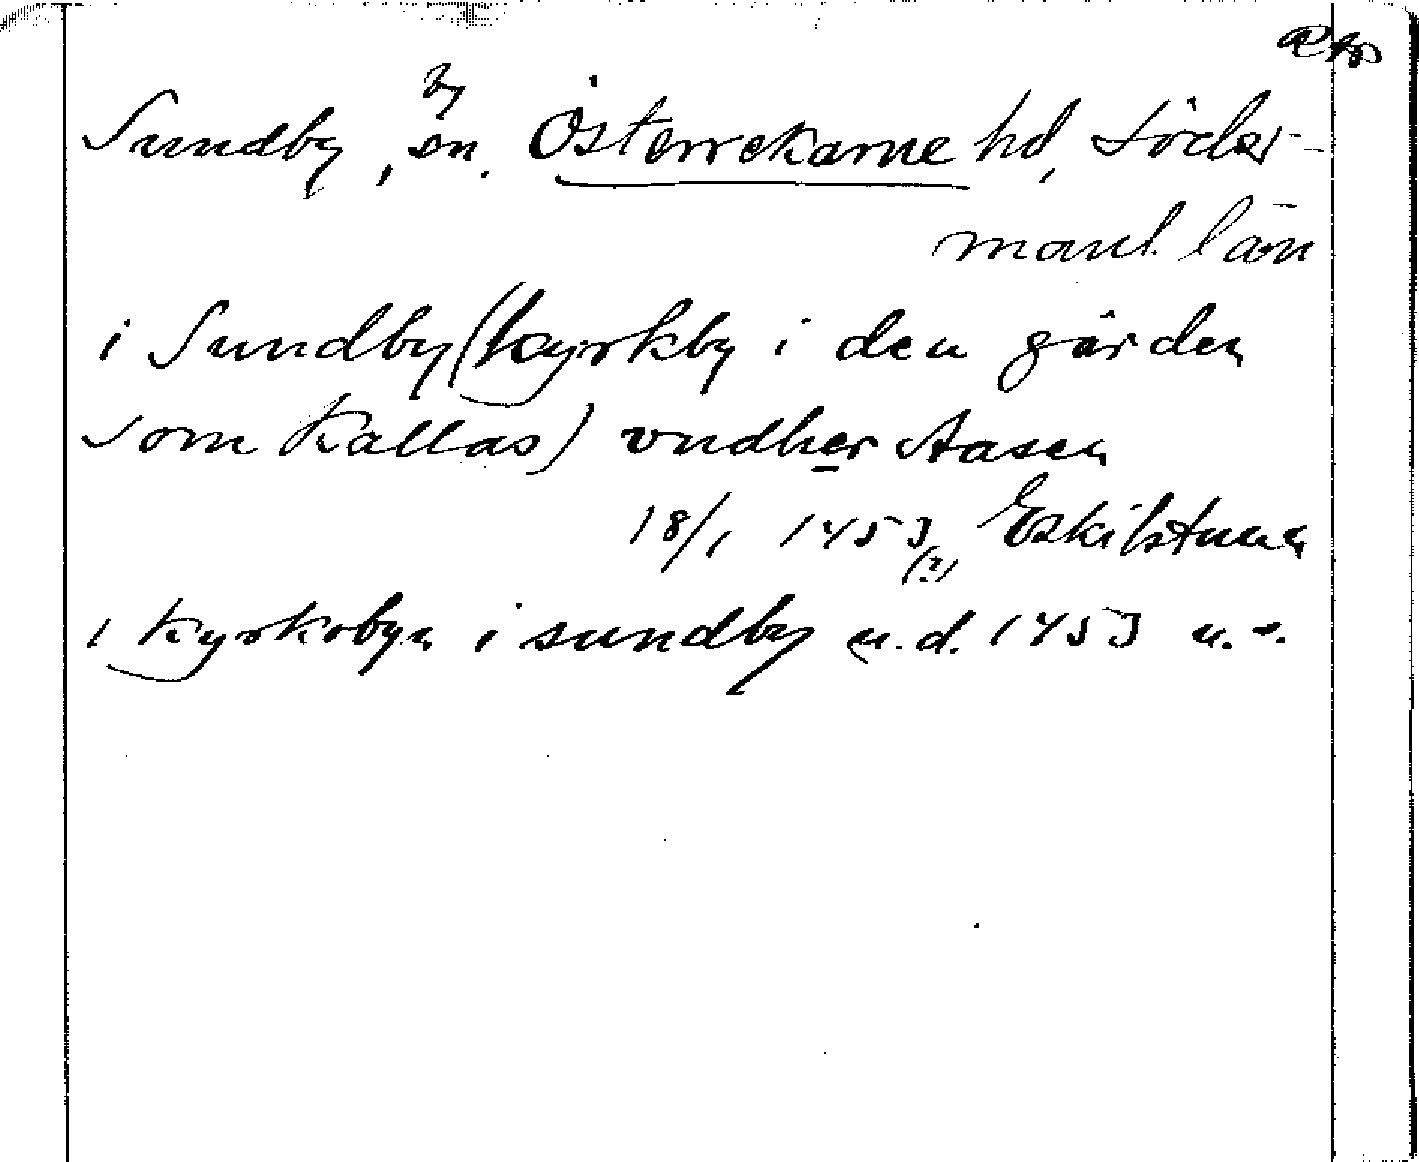 by
Sundby, sn. Österrekarne hd, Söder-
manl. län
i Sundby (kyrkby i den gården
som kallas) vndher Aasen
18/1 1453 (?) Eskilstuna
i kyrkobyn i sundby u.d. 1453 u. s.